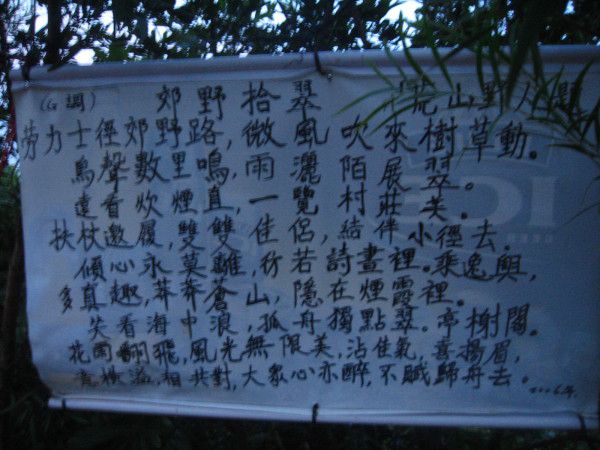 (G調) 郊野拾翠 荒山野人題
勞力士徑郊野路,微風吹來樹草動。
鳥聲數里鳴,雨灑陌展翠。
遠看炊煙直,一覽村莊美。
扶杖邀履,雙雙佳侶,結伴小徑去。
傾心永莫離,彷若詩畫裡。乘逸興,
多真趣,莽莽蒼山,隱在煙霞裡。
笑看海中浪,孤舟獨點翠。亭榭閣。
花開翻飛,風光無限美,沾佳氣,喜揚眉,
橫溢相共對,大衆心亦醉,不賦歸舟去。2006年.